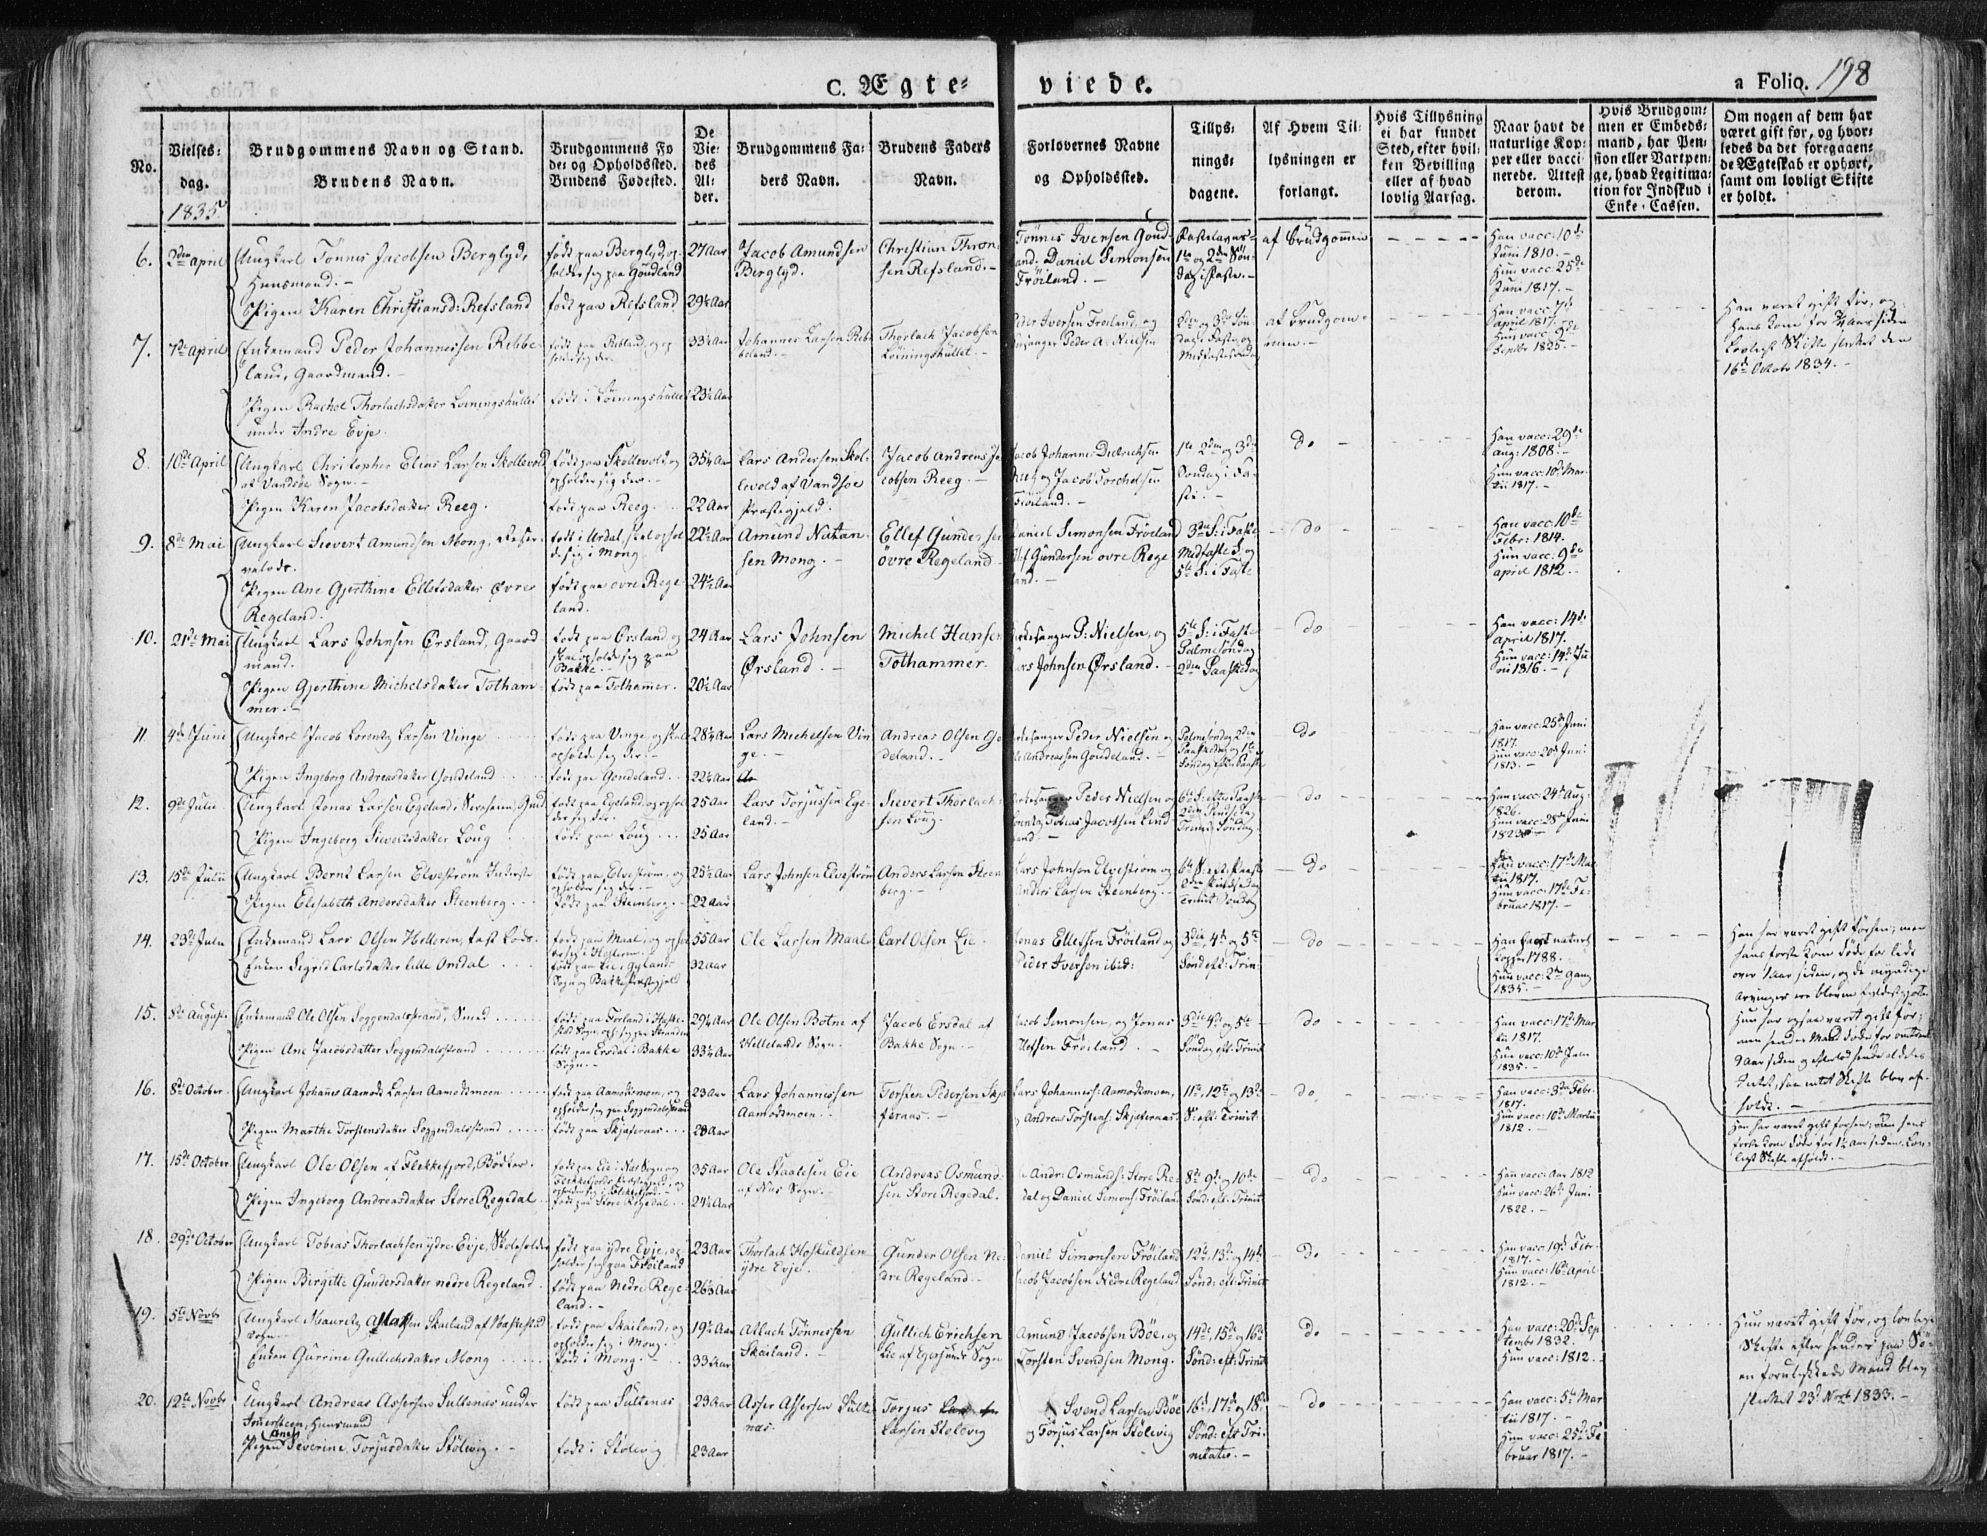 C. Ægte-
viede.
a Folio. 198
No.
Vielses-
dag.
1835
Brudgommens Navn og Stand.
Brudens Navn.
Brudgommens Fø
de- og Opholdssted.
Brudens Fødested.
De
Vie-
des
Al-
der.
Brudgommens Fa-
ders Navn.
Brudens Faders
Navn.
Forlovernes Navne
og Opholdssted.
Tillys-
nings-
dagene.
Af Hvem Til-
lysningen er
forlangt.
Hvis Tillysning
ei har fundet
Sted, efter hvil-
ken Bevilling
eller af hvad
lovlig Aarsag.
Naar havt de
naturlige Kop-
per eller vacci-
nerede. Attest
derom.
Hvis Brudgom-
men er Embeds-
mand, har Pen-
sion eller Vartpen-
ge, hvad Legitima-
tion for Indskud i
Enke-Cassen.
Om nogen af dem har
været gift før, og hvor-
ledes da det foregaaen-
de Ægteskab er ophørt,
samt om lovligt Skifte
er holdt.
6. 2den April
Ungkarl Tönnes Jacobsen Berglyd,
Huusmand. -
Pigen Karen Christiansd: Refsland
født paa Berglyd, op-
holder sig paa Goudland
født paa Refsland
27 Aar
29½ Aar
Jacob Amundsen
Berglyd.
Christian Thron-
sen Refsland. -
Tönnes Iversen Goud-
land. Daniel Simonsen
Fröiland. -
1ste og 2den Søn-
dag i Faste. -
af Brudgommen
Han vacc: 10de
Juni 1810. -
Hun vacc: 25de
Juni 1817. -
7. 7de April
Enkemand Peder Johannessen Ribbe-
land, Gaardmand. -
Pigen Rachel Thorlachsdatter Löiningshullet
under Indre Evje.
født i Löiningshullet
33½ Aar
23½ Aar
Johannes Larsen Rib-
beland. -
Thorlach Jacobsen
Löiningshullet. -
Peder Iversen Fröiland, og
Peder A. Nielsen
af Brudgom-
men. -
Han vacc: 7de
April 1817.
Septbr 1825. -
Han været gift før, og
hans Kone for ¾ Aar siden
Lovligt Skifte sluttet den
16de Octobr 1834. -
8. 10de April
Ungkarl Christopher Elias Larsen Skollevold
af Vandsøe Sogn. -
Pigen Karen Jacobsdatter Reeg.
født paa Skollevold, og
opholder sig der. -
født paa Reeg.
35½ Aar
22 Aar
Lars Andersen Skol-
levold af Vandsøe
Præstegjeld.
Jacob Andreas Ja-
cobsen Reeg. -
Jacob Johannes Didrichsen
Reeg og Jacob Torchelsen
Fröiland. -
1ste 2den og 3die
Søndag i Fa-
ste. -
do
Han vacc: 29de
Aug: 1808. -
Hun vacc: 10de Mar-
tii 1817. -
9. 8de Mai
Ungkarl Sievert Amundsen Mong, Reser-
velods.
Pigen Ane Gjerthine Ellefsdatter Øvre
Regeland.
født i Ardal, skal ophol-
de sig i Mong.
født paa øvre Rege-
land.
22½ Aar
24½ Aar
Amund Natan-
sen Mong. -
Ellef Gundersen
övre Regeland
Daniel Simonsen Fröiland
Ellef Gundersen övre Rege-
land. -
3die S: i Faste
Midfaste S. og
5te S: i Faste
do
Han vacc: 10de
Febr: 1814.
Hun vacc: 9de
April 1812. -
10. 21de Mai
Ungkarl Lars Johnsen Ørsland, Gaard
mand.
Pigen Gjerthine Michelsdatter Totham-
mer. -
født paa Ørsland og
skal opholde sig paa
Bakke. -
født paa Tothammer. -
24 Aar
20½ Aar
Lars Johnsen
Ørsland. -
Michel Hansen
Tothammer.
Kirkesanger P: Nielsen, og
Lars Johnsen Ørsland. -
5te S: i Faste
Palmesøndag
2den Paaskedag
do
Han vacc: 14de
April 1817.
Hun vacc: 14de Ju-
ni 1816. -
11 4de Juni
Ungkarl Jacob Lorentz Larsen Vinge
Pigen Ingeborg Andreasdatter Goudeland
født paa Vinge og skal
opholde sig der. -
født paa Goudeland.
28½ Aar
22½ Aar
Lars Michelsen Vin-
ge. -
Andreas Olsen Go
deland. -
Kirkesanger Peder Nielsen og
Andreassen Goudeland. -
Palmesøndag 2den
Paaskedag og 1ste
Søndag efter Paaske
do
Han vacc: 25de Juni
1817.
Hun vacc: 20de Juni
1813. -
12. 9de Julii
Ungkarl Jonas Larsen Egeland, Gaard
Pigen Ingeborg Sievertsdatter Loug
født paa Egeland, og ophol-
der sig der.
født paa Loug
25 Aar
25 Aar
Lars Torjussen Ege-
land. -
Sievert Thorlach-
sen Loug.
Kirkesanger Peder Nielsen og
Tobias Jacobsen Lind-
land -
6te S: efter Paaske
2den Pindsedag
Trinit: Søndag.
do
Han vacc: 24de Aug:
1826.
Hun vacc: 28de Juni
1823 -
13. 15de Julii
Ungkarl Bernt Larsen Elvestrøm
Pigen Elisabeth Andersdatter Steenberg
født paa Elvestrøm, og
opholder sig der. -
født paa Steenberg. -
25½ Aar
22 Aar
Lars Johnsen Elvestrøm
Anders Larsen Steen
berg. -
Lars Johnsen Elvestrøm og
Anders Larsen Steenberg. -
6te S: eft: Paaske
2den Pindsedag
Trinit Søndag
do
Han vacc: 17de Mar-
tii 1817.
Hun vacc: 17de Fe-
bruar 1817. -
14. 23de Julii
Enkemand Lars Olsen Helleren, fast Lods.
Enken Sigrid Carlsdatter Lille Omdal
født paa Maal, og ophol-
der sig i Helleren.
født paa Lie i Gylands
Sogn og Bakke Præstegjeld
55 Aar
32 Aar
Ole Larsen Maal
Carl Olsen Lie.
Jonas Ellefsen Fröiland og
Peder Iversen ibid:
3die 4de og 5te
Sønd eft: Trin:
do
Han havt naturl:
Kopper 1788. -
Hun vacc: 2den Gang
1835. -
Han har været gift forhen; men
hans første Kone døde for lidt
over 1 Aar siden, og de myndige
Arvinger ere blevne fyldestgjorte
Hun har ogsaa været gift før;
men hendes Mand døde for omtrent
9 Aar siden og efterlod hende aldeles
Intet, saa intet Skifte blev af-
holdt. -
15. 8de August
Enkemand Ole Olsen Soggendalsstrand, Smed
Pigen Ane Jacobsdatter Soggendalsstrand
født paa Ersdal i Bakke
Sogn. -
29¼ Aar
33¼ Aar
Ole Olsen Botne af
Hellelands Sogn.
Jacob Ersdal af
Bakke Sogn. -
Jacob Simonsen, og Jonas
Ellefsen Fröiland. -
3die 4de og 5te
Søndag eft: Trinit
do
Han vacc: 17de Mar
tii 1817.
Hun vacc: 10de Julii
1835. -
Han har været gift forhen; men hans
første Kone døde for 1½ Aar siden. Lov-
ligt Skifte afholdt. -
16. 8de October
Ungkarl Johannes Aamodt Larsen Aamodsmoen
Pigen Marthe Torstensdatter Soggendalsstrand
født paa Aamodsmoen, og
opholder sig paa Soggendalsstrand
født paa Skjæfernaes
23 Aar
28 Aar
Lars Johannessen
Aamodsmoen. -
Torsten Pedersen Skjæ
fernæs. -
Lars Johanness: Aamodsmoen,
og Andreas Torstens: Skjæfernaes
11te, 12te og 13de
S: eft: Trinit:
do.
Han vacc: 3die Febr:
1817.
Hun vacc: 10de Martii
1812. -
17. 15de October
Ungkarl Ole Olsen af Flekkefjord, Bödker.
Pigen Ingeborg Andreasdatter Store Regedal
født paa Eie i Næs Sogn og
Flekkefjords Præstegjeld, og
opholder sig i Flekkefjord. -
født paa Store Regedal
35 Aar
24½ Aar
Ole Staalesen Eie
af Næs Sogn.
Andreas Osmund-
sen Store Regedal.
Andr: Osmunds: Store Re-
dal og Daniel Simons: Fröiland
8de 9de og 10de
Sønd: eft: Trinit:
do
Han vacc: Aar 1812
Hun vacc: 26de Juni
1822. -
18. 29de October
Ungkarl Tobias Thorlachsen ydre Evje, Skoleholder
Pigen Birgitte Gundersdatter nedre Regeland
født paa ydre Evje, op-
holder sig paa Fröiland
født paa Nedre Rege-
land. -
23 Aar
26¾ Aar
Thorlach Hoskuldsen
ydre Evje.
Gunder Olsen Ne-
dre Regeland. -
Daniel Simonsen Fröiland
Jacob Jacobsen Nedre Regeland
12te, 13de og 14de
Sønd: eft: Trinit
do
Han vacc: 19de Febr:
1817. -
Hun vacc: 16de April
1812. -
19. 5te Novbr
Ungkarl Mauritz Atlaksen Skailand af Bakkestad
Sogn
Enken Gurrine Gullichsdatter Mong
født paa Skailand, og
opholder sig i Mong.
født i Mong. -
19½ Aar
33 Aar
Atlach Tönnessen
Skailand. -
Gullich Erichsen
Lie af Egersunds Sogn
Amund Jacobsen Böe, og
Torsten Svendsen Mong.
14de, 15de og 16de
Sønd: eft: Trinit
do
Han vacc: 20de Sep-
tembr 1832.
Hun vacc: 1812. -
Hun været gift før, og lovligt
Skifte efter hendes paa Sö-
en forulykkede Mand blev
sluttet 23de Novbr 1833. -
20. 12te Novbr
Ungkarl Andreas Assersen Sultenæs under
Huusmand
Pigen Ane Severine Torjusdatter Stölevig. -
født paa Sultenæs
født i Stölevig
23 Aar
23 Aar
Asser Assersen Sulte
næs.
Torjus
Larsen Stolevig
Svend Larsen Böe
og Torjus Larsen Stölevig
16de 17de og 18de
Sønd: eft: Tri-
nitatis. -
do
Han vacc: 5te Mar
tii 1817. -
Hun vacc: 25de Fe
bruar 1817. -